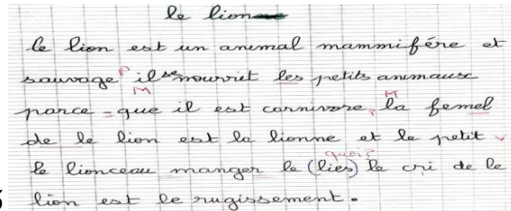 le lion
le lion est un animal mammifére et
sauvage il se nourrit les petits animause
P M M
parce-que il est carnivore, la femel
de le lion est la lionne et le petit
quoi?
le lionceau manger le (lies) le cri de le
lion est le rugissement.